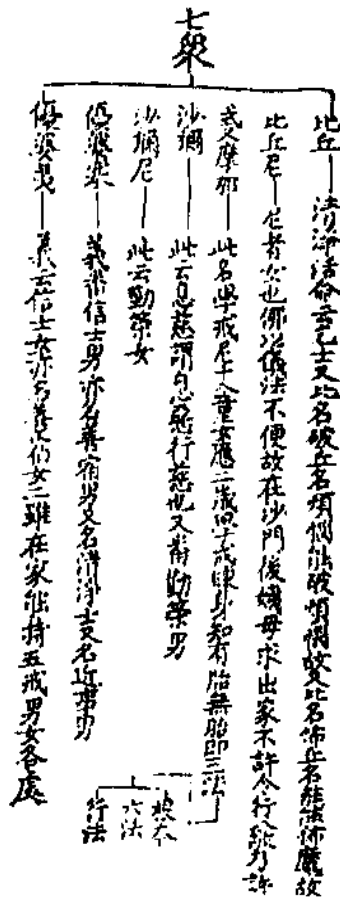 七眾
比丘 清淨活命故乞士又比名破丘名煩惱能破煩惱故又比名怖丘名能能怖魔故
比丘尼 尼者女也佛以儀法不便故在沙門後姨母求出家不許令行八敬方許
式叉摩那 此名學戒尼十八童女應二歲學戒練身知有胎無胎即三法
根本
六法
行法
沙彌 此云息慈謂息惡行慈也又翻勤策男
沙彌尼 此云勤策女
優婆塞 義譯信士男亦名善宿男又名清淨士又名近事男
優婆夷 義云信士女亦名善宿女二雖在家能持五戒男女各處